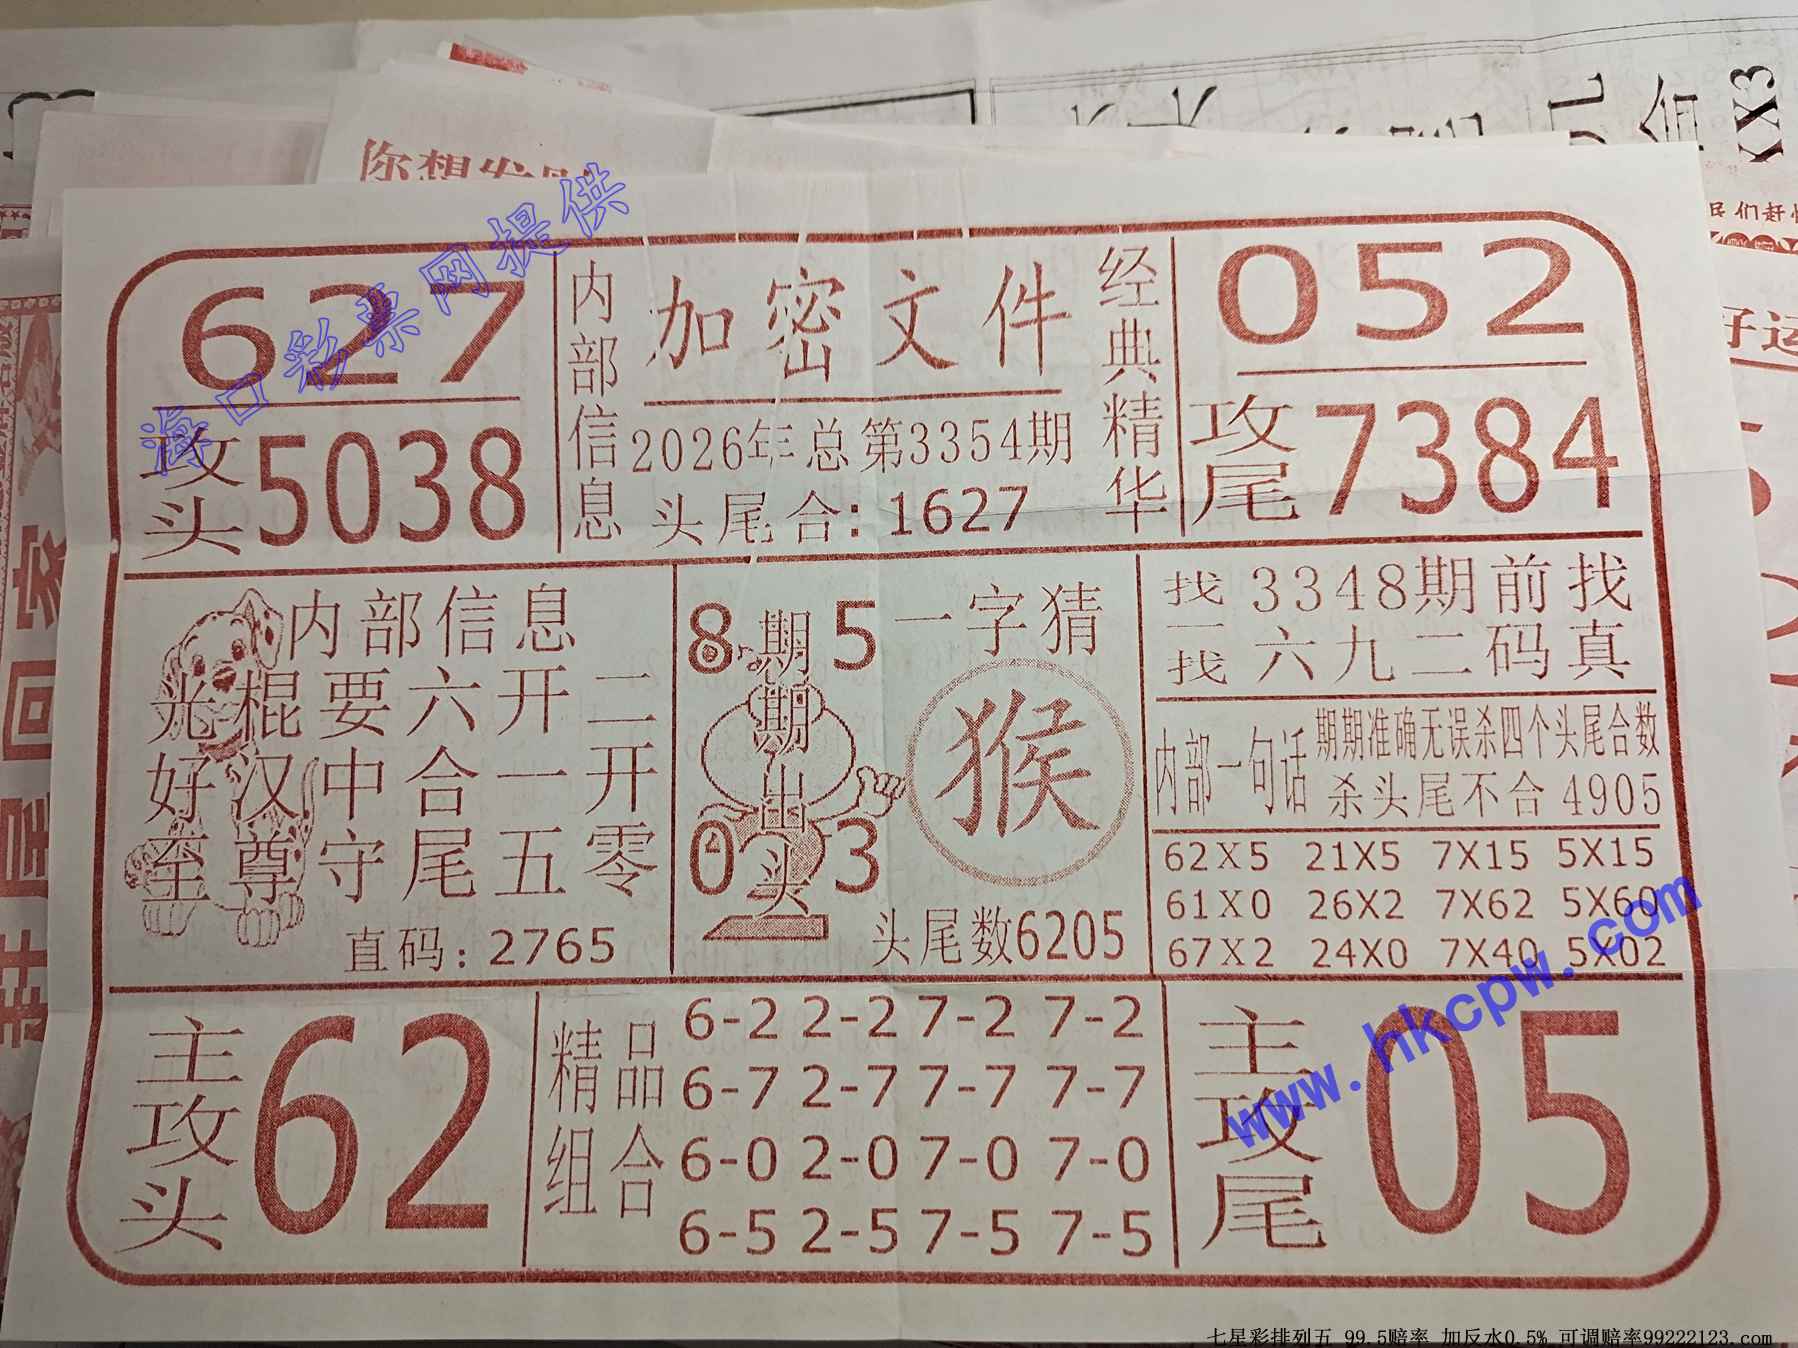 你想发财
海口彩票网提供
627
攻头 5038
内部信息
加密文件
2026年总第3354期
头尾合:1627
经典精华
052
攻尾 7384
内部信息
光棍要六开二
好汉中合一开
至尊守尾五零
直码:2765
8 5
期期出头
0 3
一字猜
猴
头尾数6205
找一找
3348期前找
六九二码真
内部一句话
期期准确无误杀四个头尾合数
杀头尾不合4905
62X5 21X5 7X15 5X15
61X0 26X2 7X62 5X60
67X2 24X0 7X40 5X02
主攻头
62
精品组合
6-2 2-2 7-2 7-2
6-7 2-7 7-7 7-7
6-0 2-0 7-0 7-0
6-5 2-5 7-5 7-5
主攻尾
05
www.hkcpw.com
好运
七星彩排列五 99.5赔率 加反水0.5% 可调赔率99222123.com